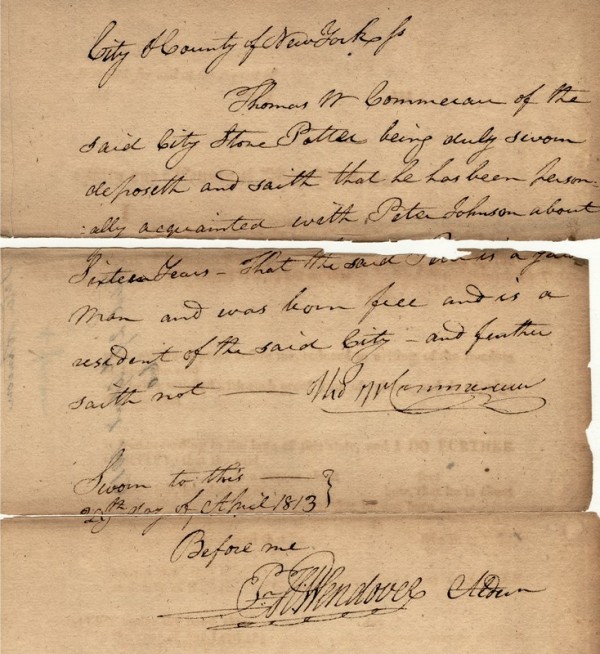 City & County of New York ss
Thomas W Commerau of the
said City Stone Potter being duly sworn
deposeth and saith that he has been person:
:ally acquainted with Peter Johnson about
Sixteen Years – That the said Peter is a
Man and was born free and is a
resident of the said City – and further
saith not — Tho W Commerau
Sworn to this —
29th day of April 1813 }
Before me
P H Wendover Alderm